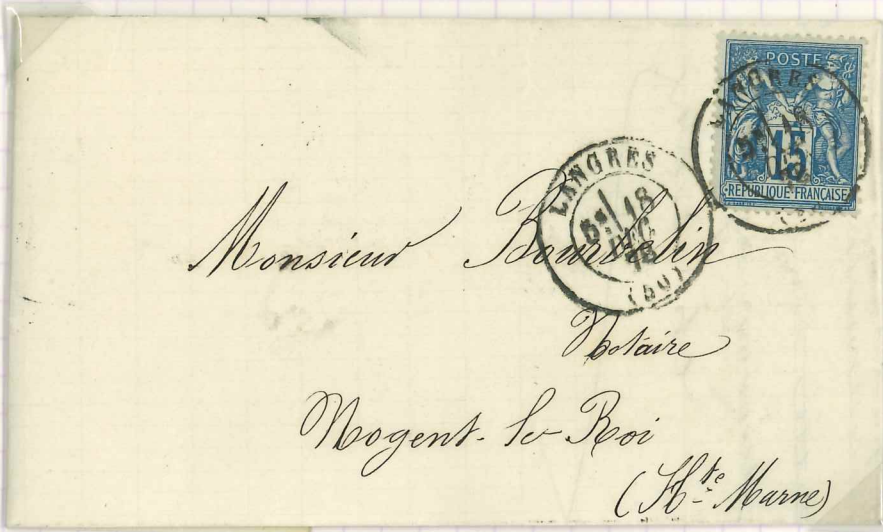 POSTE
15
REPUBLIQUE FRANÇAISE
LANGRES
18
LANGRES
5E/ 18
DEC
78
(50)
Monsieur Bourdelin
Notaire
Nogent-le-Roi
(Hte-Marne)